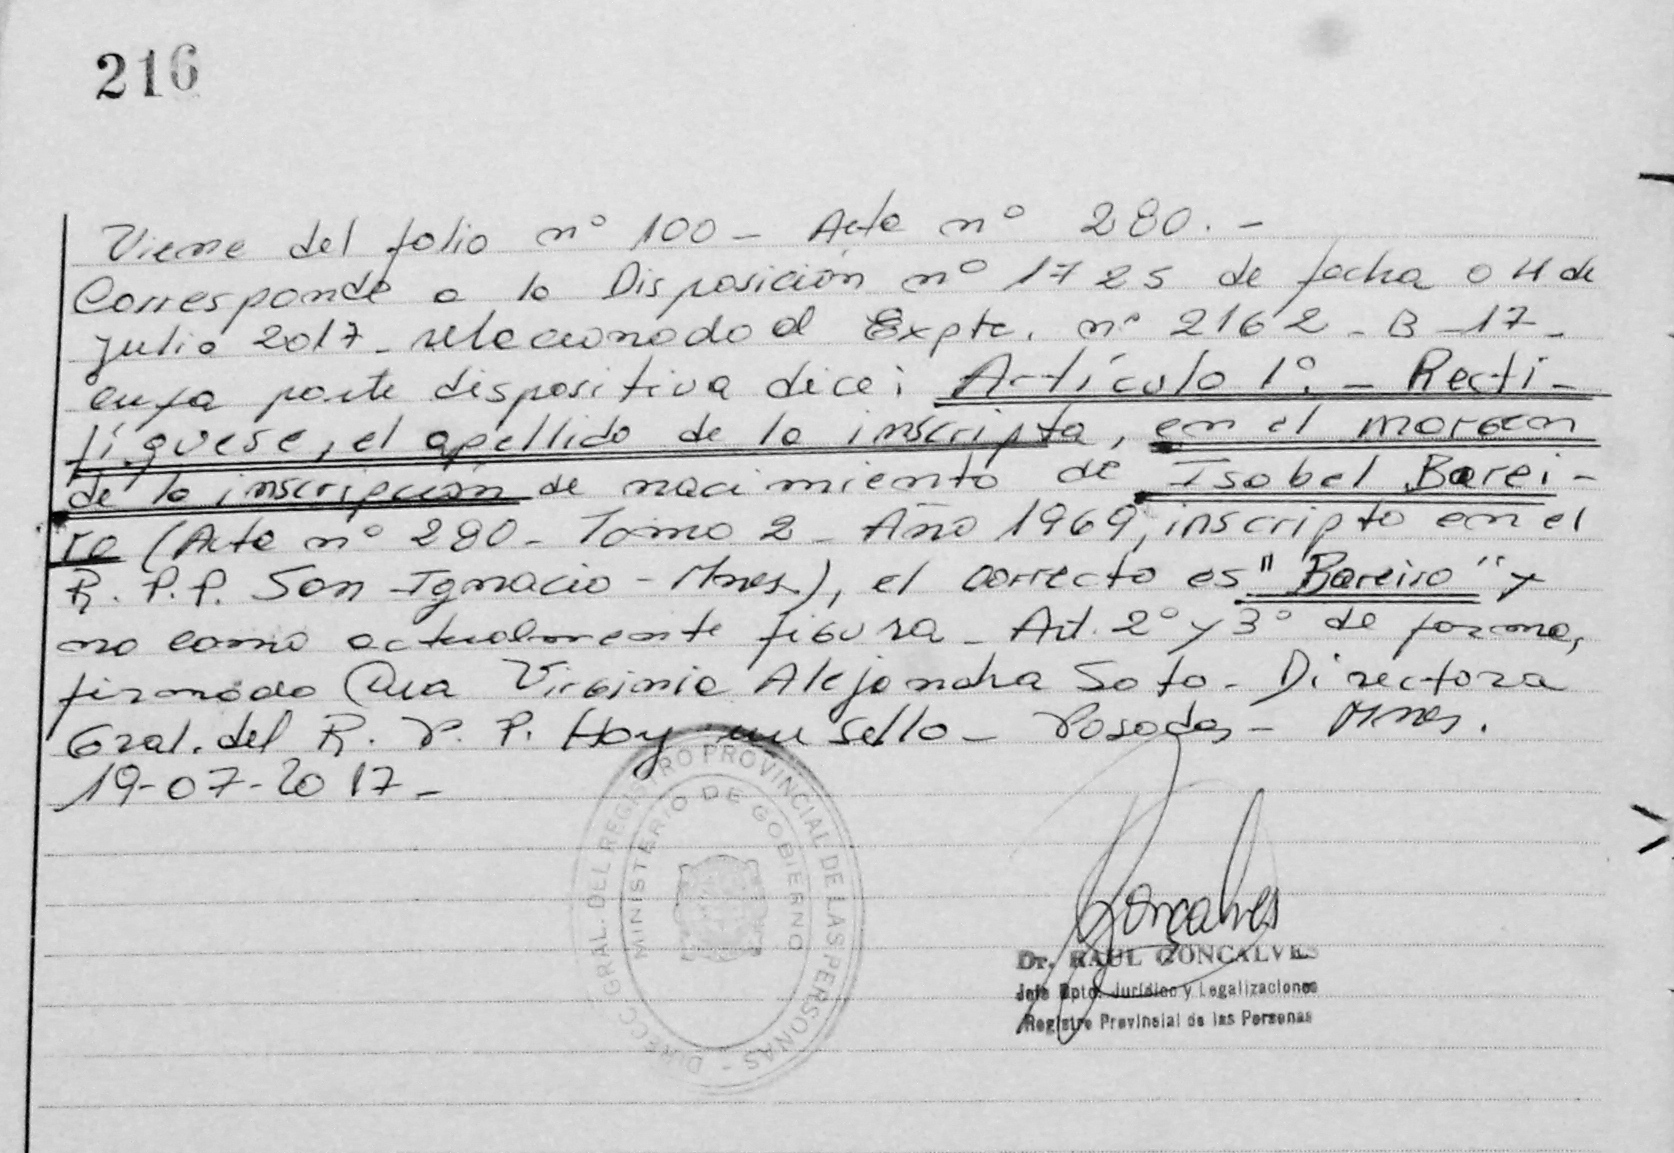 216
Viene del folio nº 100 - Acta nº 280. -
Corresponde a la Disposición nº 1725 de fecha 04 de
Julio 2017 - relacionado al Expte. nº 2162 - B - 17 -
cuya parte dispositiva dice: Artículo 1º. - Recti-
fíquese, el apellido de la inscripta, en el margen
de la inscripción de nacimiento de Isabel Barei-
ro (Acta nº 280 - Tomo 2 - Año 1969, inscripto en el
R. P. P. San Ignacio - Mnes), el correcto es "Bareiro" y
no como actualmente figura - Art. 2º y 3º de forma,
firmado Dra Virginia Alejandra Soto - Directora
Gral. del R. P. P. Hay un sello - Posadas - Mnes.
19-07-2017 -
DIRECC. GRAL. DEL REGISTRO PROVINCIAL DE LAS PERSONAS -
MINISTERIO DE GOBIERNO
Gonçalves
Dr. RAUL GONCALVES
Jefe Dpto. Jurídico y Legalizaciones
Registro Provincial de las Personas